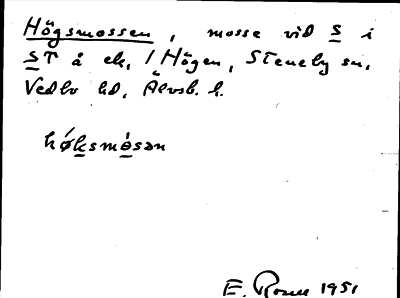 Högsmossen, mosse vid S i
ST å ek, 1 Högen, Steneby sn,
Vedbo hd, Älvsb. l.
hǿksmòsən
E. Rosell 1951